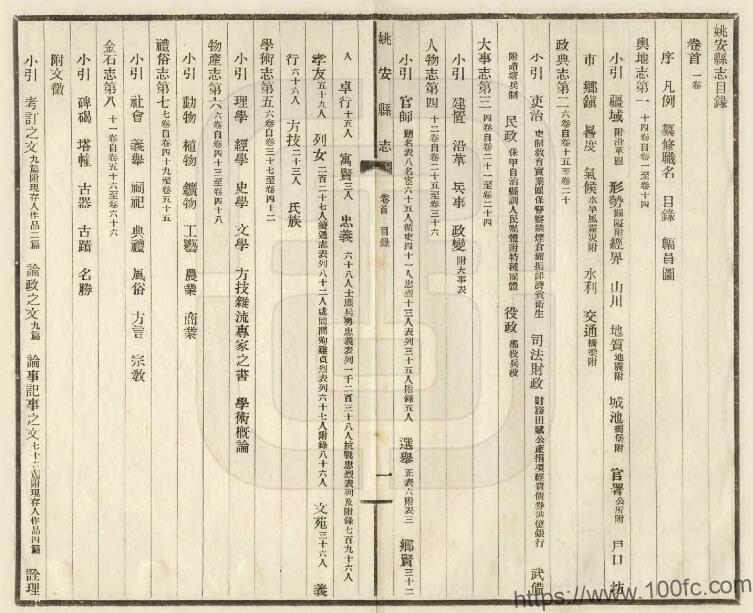 姚安縣志目錄
卷首 一卷
序 凡例 纂修職名 目錄 幅員圖
輿地志第一 十四卷自卷一至卷十四
小引 疆域附沿革圖 形勢關隘附 經界 山川 地質地震附 城池碉堡附 官署公所附 戶口 坊
市 鄉鎮 晷度 氣候水旱風霜災附 水利 交通橋梁附
政典志第二 六卷自卷十五至卷二十
小引 吏治 吏制教育實業團保警察禁煙倉儲振卹濟貧衛生 司法 財政 財務田賦公產捐項經費債券積儲銀行 武備
附諸塘兵制 民政 保甲自治縣訓人民團體附特種團體 役政 徭役兵役
大事志第三 四卷自卷二十一至卷二十四
小引 建置 沿革 兵事 政變附大事表
人物志第四 十二卷自卷二十五至卷三十六
小引 官師 題名表八名宦六十五人循吏四十一人忠烈十三人表列三十五人附錄五人 選舉 正表六附表三 鄉賢三十二
姚安縣志 卷首 目錄 一
人 卓行十五人 寓賢三人 忠義 六十八人士庶兵勇忠義表列一千二百三十八人抗戰忠烈表列及附錄七百九十六人
孝友五十九人 列女 二百二十七人續通志表列八十二人咸同間殉難貞烈表列六十七人附錄八十六人 文苑三十六人 義
行六十八人 方技二十三人 氏族
學術志第五 六卷自卷三十七至卷四十二
小引 理學 經學 史學 文學 方技雜流專家之書 學術概論
物產志第六 六卷自卷四十三至卷四十八
小引 動物 植物 鑛物 工藝 農業 商業
禮俗志第七 七卷自卷四十九至卷五十五
小引 社會 義舉 祠祀 典禮 風俗 方言 宗教
金石志第八 十一卷自卷五十六至卷六十六
小引 碑碣 塔幢 古器 古蹟 名勝
附文徵
小引 考訂之文九篇附現存人作品二篇 論政之文九篇 論事記事之文七十六篇附現存人作品四篇 詮理
https://www.100fc.com